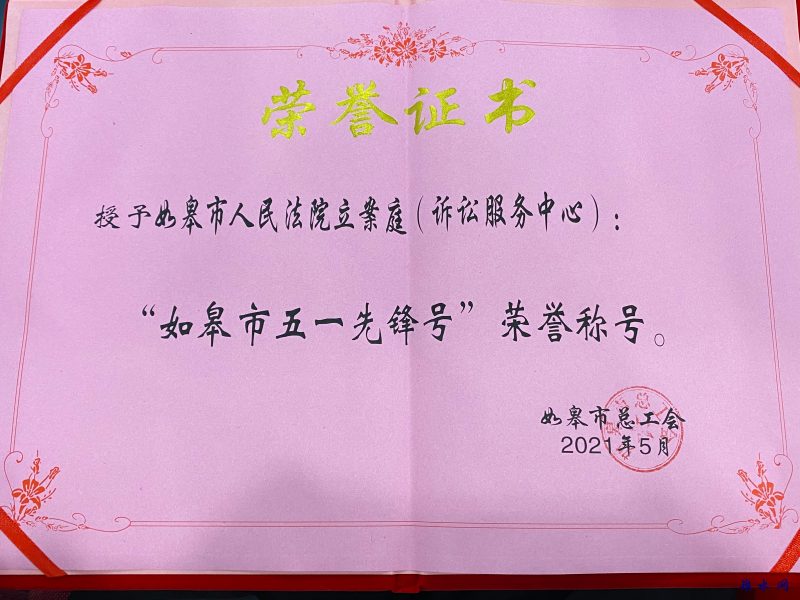 荣誉证书
授予如皋市人民法院立案庭（诉讼服务中心）：
“如皋市五一先锋号”荣誉称号。
如皋市总工会
2021年5月